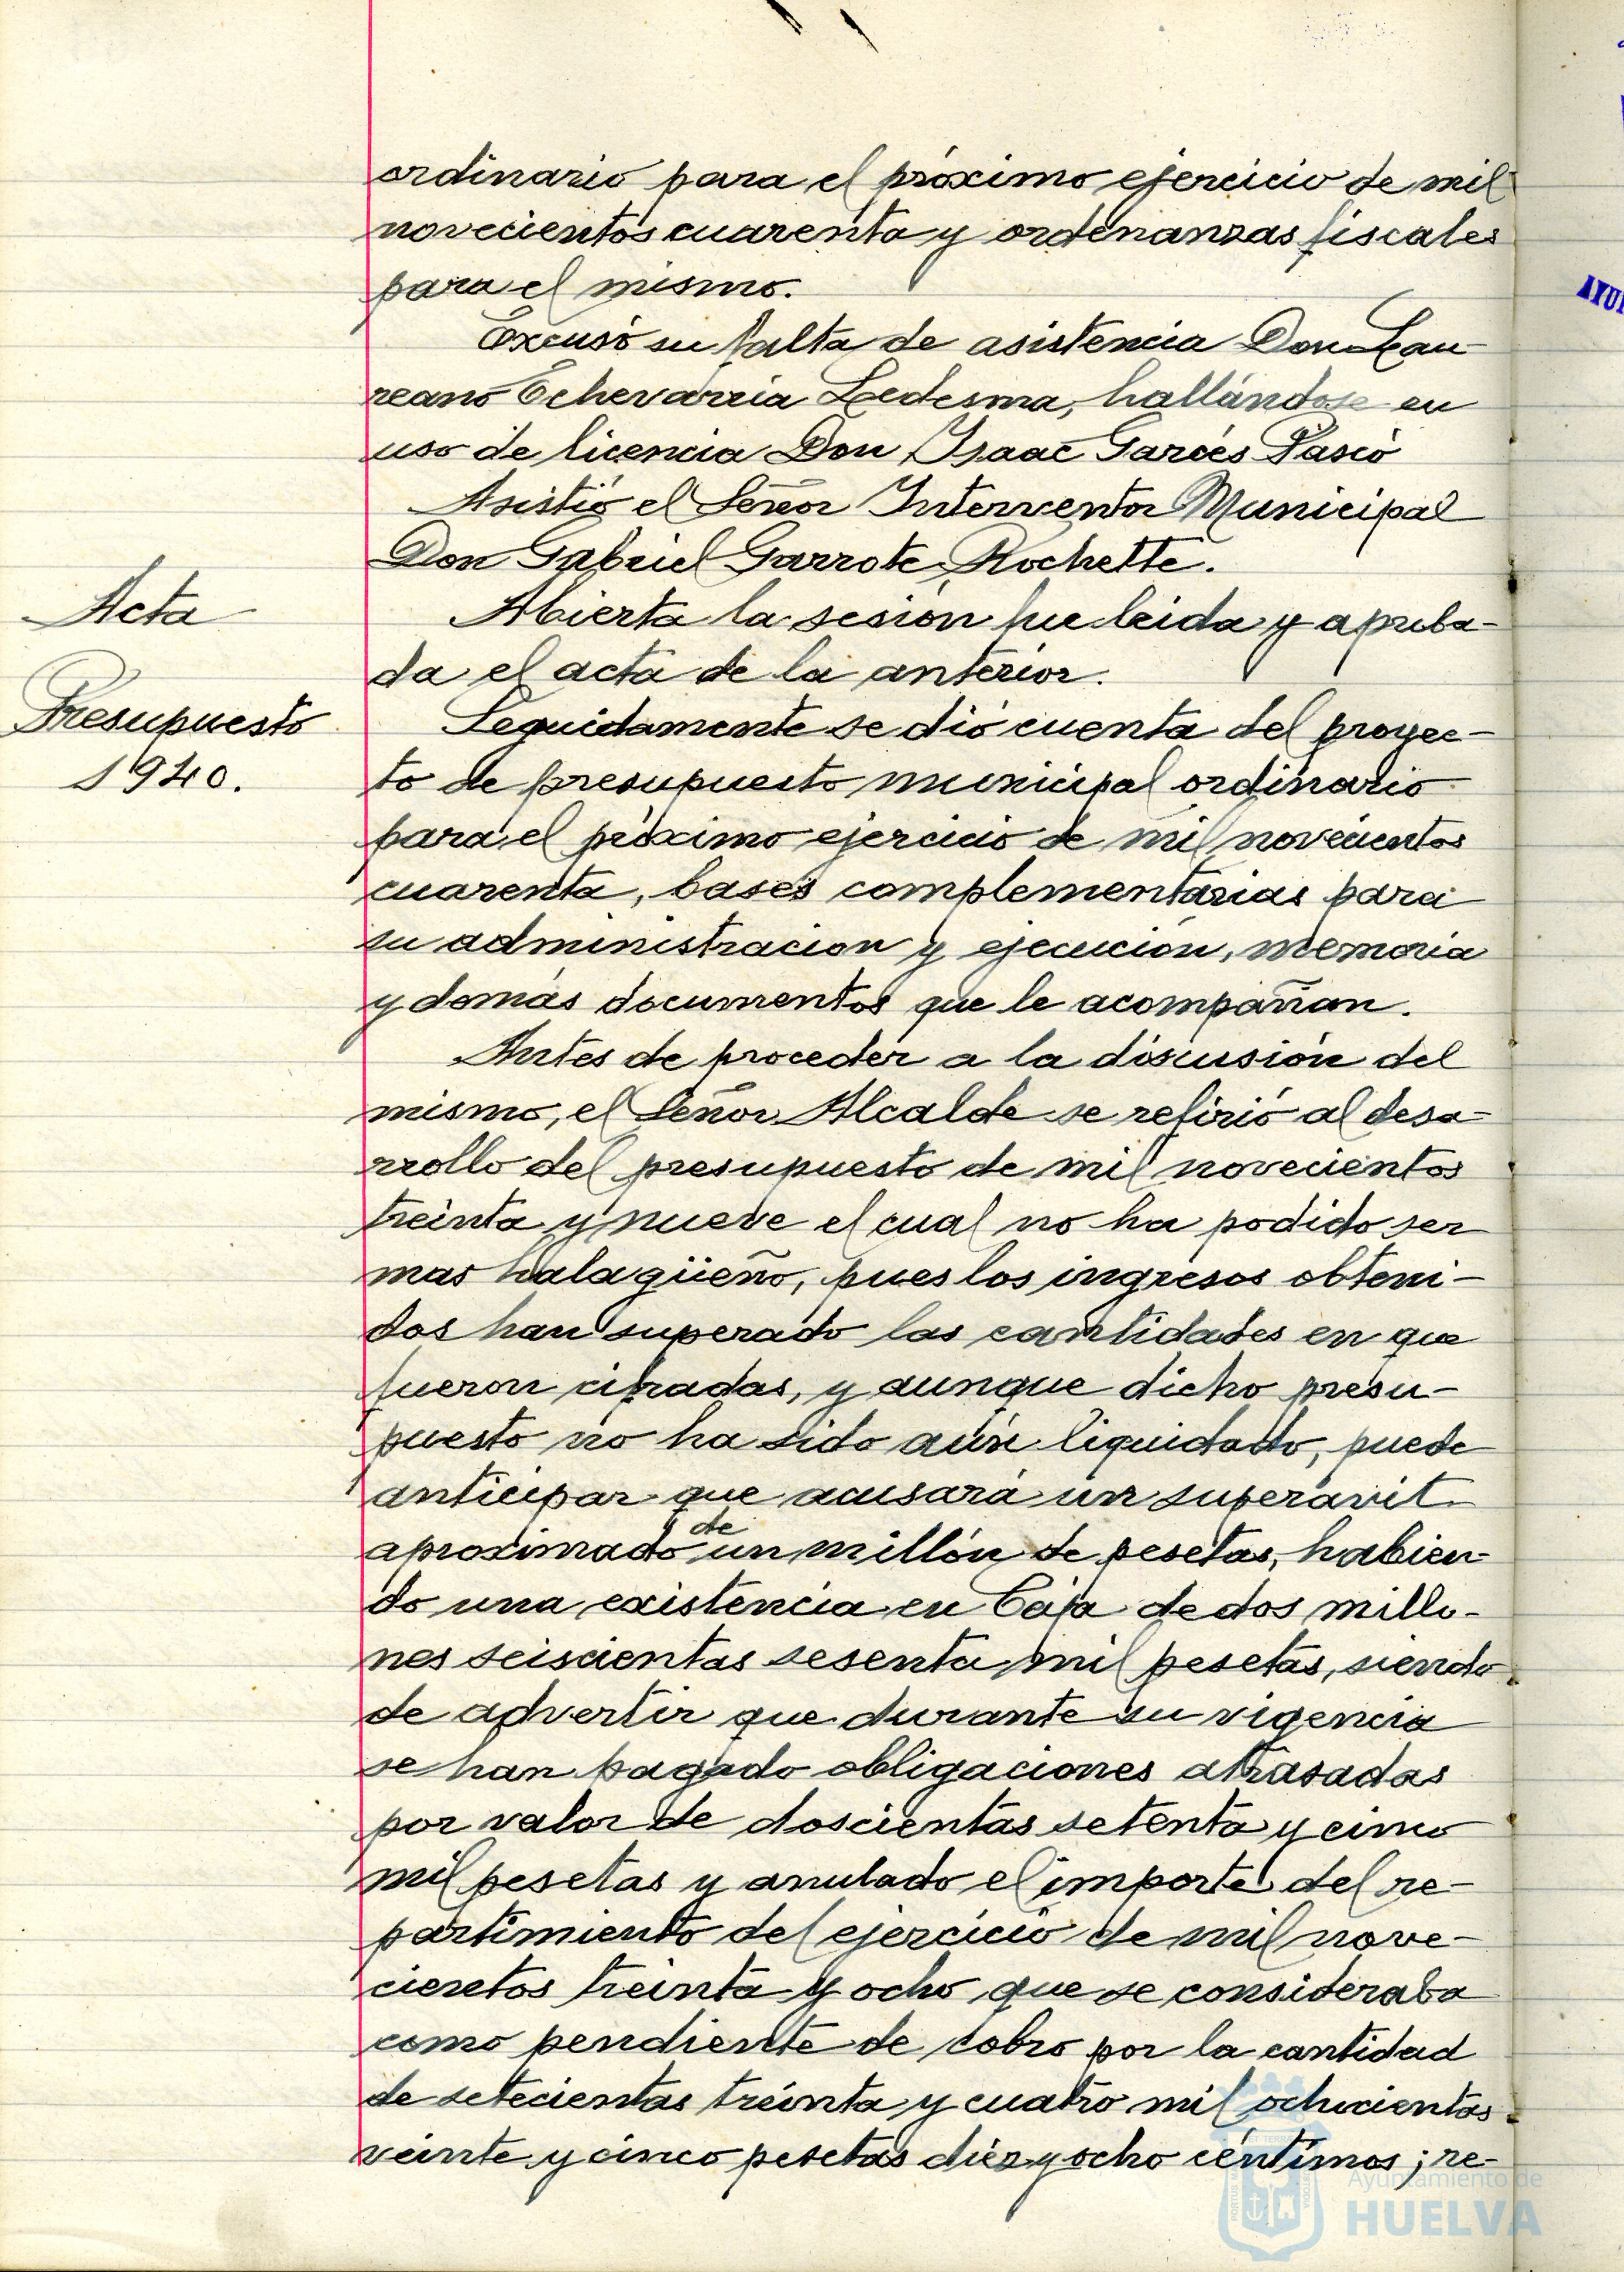 ordinario para el próximo ejercicio de mil
novecientos cuarenta y ordenanzas fiscales
para el mismo.
Excusó su falta de asistencia Don Lau-
reano Echevarria Ledesma, hallándose en
uso de licencia Don Isaac Garcés Pasció
Asistió el Señor Interventor Municipal
Don Gabriel Garrote Rochette.
Acta
Abierta la sesión fue leida y aproba-
da el acta de la anterior.
Presupuesto
1940.
Seguidamente se dió cuenta del proyec-
to de presupuesto municipal ordinario
para el próximo ejercicio de mil novecientos
cuarenta, bases complementarias para
su administracion y ejecucion, memoria
y demás documentos que le acompañan.
Antes de proceder a la discusión del
mismo, el Señor Alcalde se refirió al desa-
rrollo del presupuesto de mil novecientos
treinta y nueve el cual no ha podido ser
mas halagüeño, pues los ingresos obteni-
dos han superado las cantidades en que
fueron cifradas, y aunque dicho presu-
puesto no ha sido aún liquidado, puede
anticipar que acusará un superávit
aproximado de un millón de pesetas, habien-
do una existencia en Caja de dos millo-
nes seiscientas sesenta mil pesetas, siendo
de advertir que durante su vigencia
se han pagado obligaciones atrasadas
por valor de doscientas setenta y cinco
mil pesetas y anulado el importe del re-
partimiento del ejercicio de mil nove-
cientos treinta y ocho que se consideraba
como pendiente de cobro por la cantidad
de setecientas treinta y cuatro mil ochocientas
veinte y cinco pesetas diez y ocho céntimos; re-
Ayuntamiento de
HUELVA